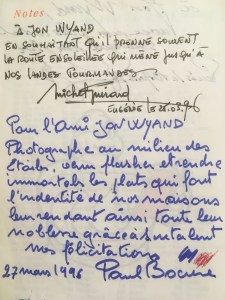 Notes
à JON WYAND
EN SOUHAITANT QU'IL PRENNE SOUVENT
LA ROUTE ENSOLEILLÉE QUI MÈNE JUSQU'À
NOS LANDES GOURMANDES
Michel Guérard
EUGÉNIE, LE 26.03.96
Pour l'Ami JON WYAND
Photographe au milieu des
Étoiles, venu flasher et rendre
immortels les plats qui font
l'identité de nos maisons
leur rendant ainsi toute leur
noblesse grâce à son talent
mes félicitations
27 mars 1996 Paul Bocuse